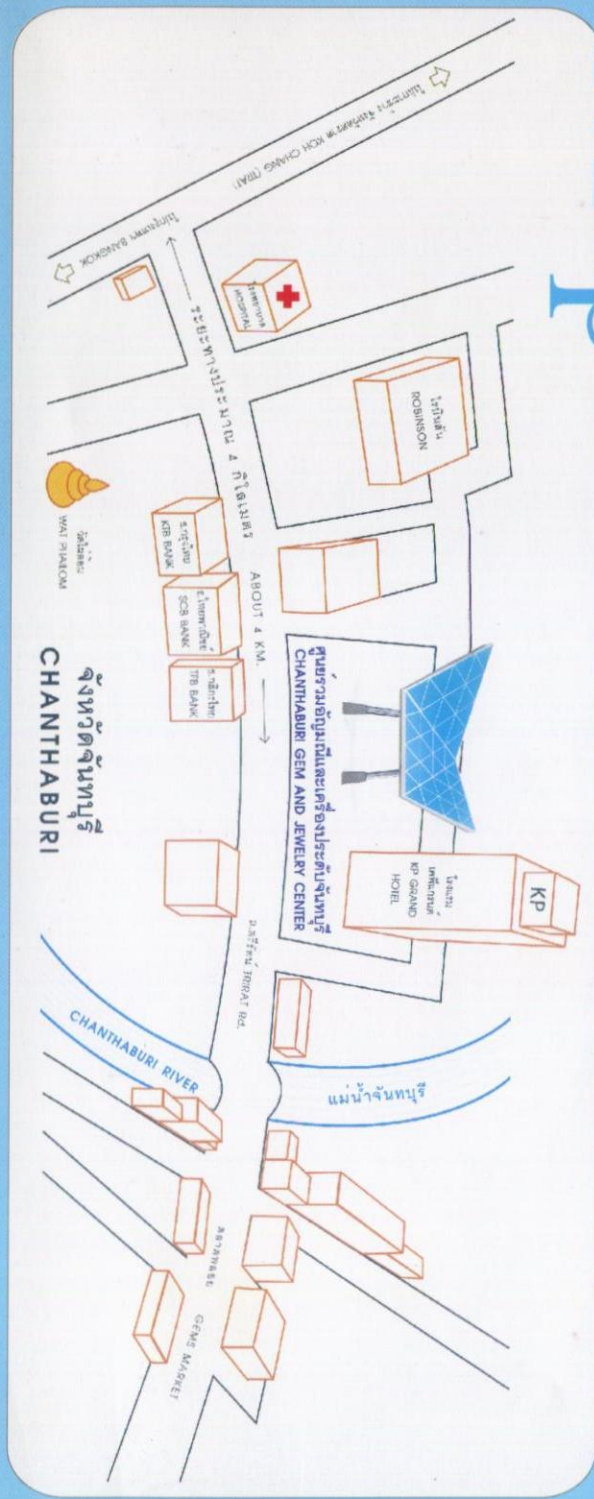 ไปเกาะช้าง จังหวัดตราด KOH CHANG (TRAT)
ไปกรุงเทพฯ BANGKOK
โรงพยาบาล
HOSPITAL
ระยะทางประมาณ 4 กิโลเมตร ABOUT 4 KM.
โรบินสัน
ROBINSON
วัดไผ่ล้อม
WAT PHAILOM
ธ.กรุงไทย
KTB BANK
ธ.ไทยพาณิชย์
SCB BANK
ธ.กสิกรไทย
TFB BANK
ศูนย์รวมอัญมณีและเครื่องประดับจันทบุรี
CHANTHABURI GEM AND JEWELRY CENTER
KP
โรงแรม
เคพีแกรนด์
KP GRAND
HOTEL
จังหวัดจันทบุรี
CHANTHABURI
ถ.ตรีรัตน์ TRIRAT Rd.
CHANTHABURI RIVER
แม่น้ำจันทบุรี
ตลาดพลอย
GEMS MARKET